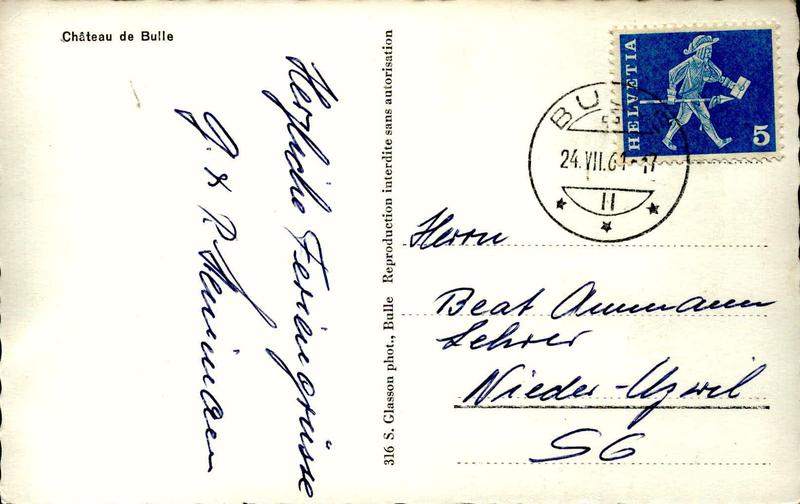 Château de Bulle
Herzliche Feriengrüsse
316 S. Glasson phot., Bulle Reproduction interdite sans autorisation
HELVETIA
5
BU
24.VII.61-17
II
Herrn
Beat Ammann
Lehrer
Nieder-Uzwil
SG